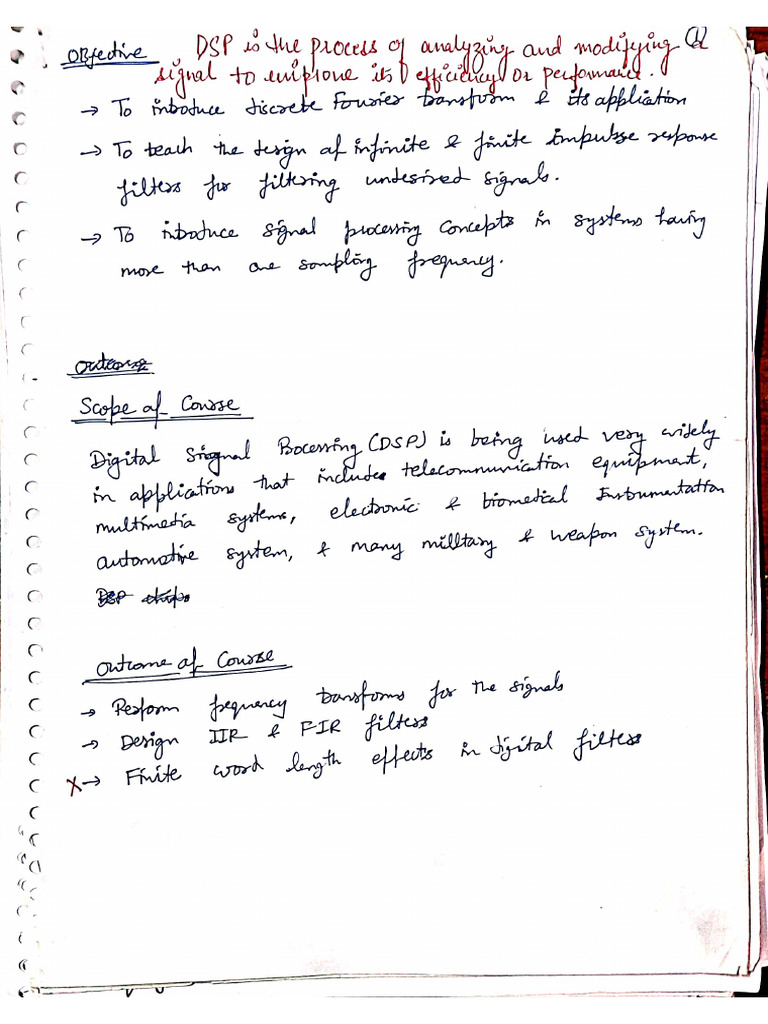 Objective DSP is the process of analyzing and modifying a
signal to improve its efficiency or performance.
→ To introduce discrete Fourier transform & its application
→ To teach the design of infinite & finite impulse response
filters for filtering undesired signals.
→ To introduce signal processing concepts in systems having
more than one sampling frequency.
Outcome
Scope of Course
Digital Signal Processing (DSP) is being used very widely
in applications that include telecommunication equipment,
multimedia systems, electronic & biomedical Instrumentation
automotive system, & many military & weapon system.
DSP chips
Outcome of Course
→ Perform frequency transforms for the signals
→ Design IIR & FIR filters
X→ Finite word length effects in digital filters